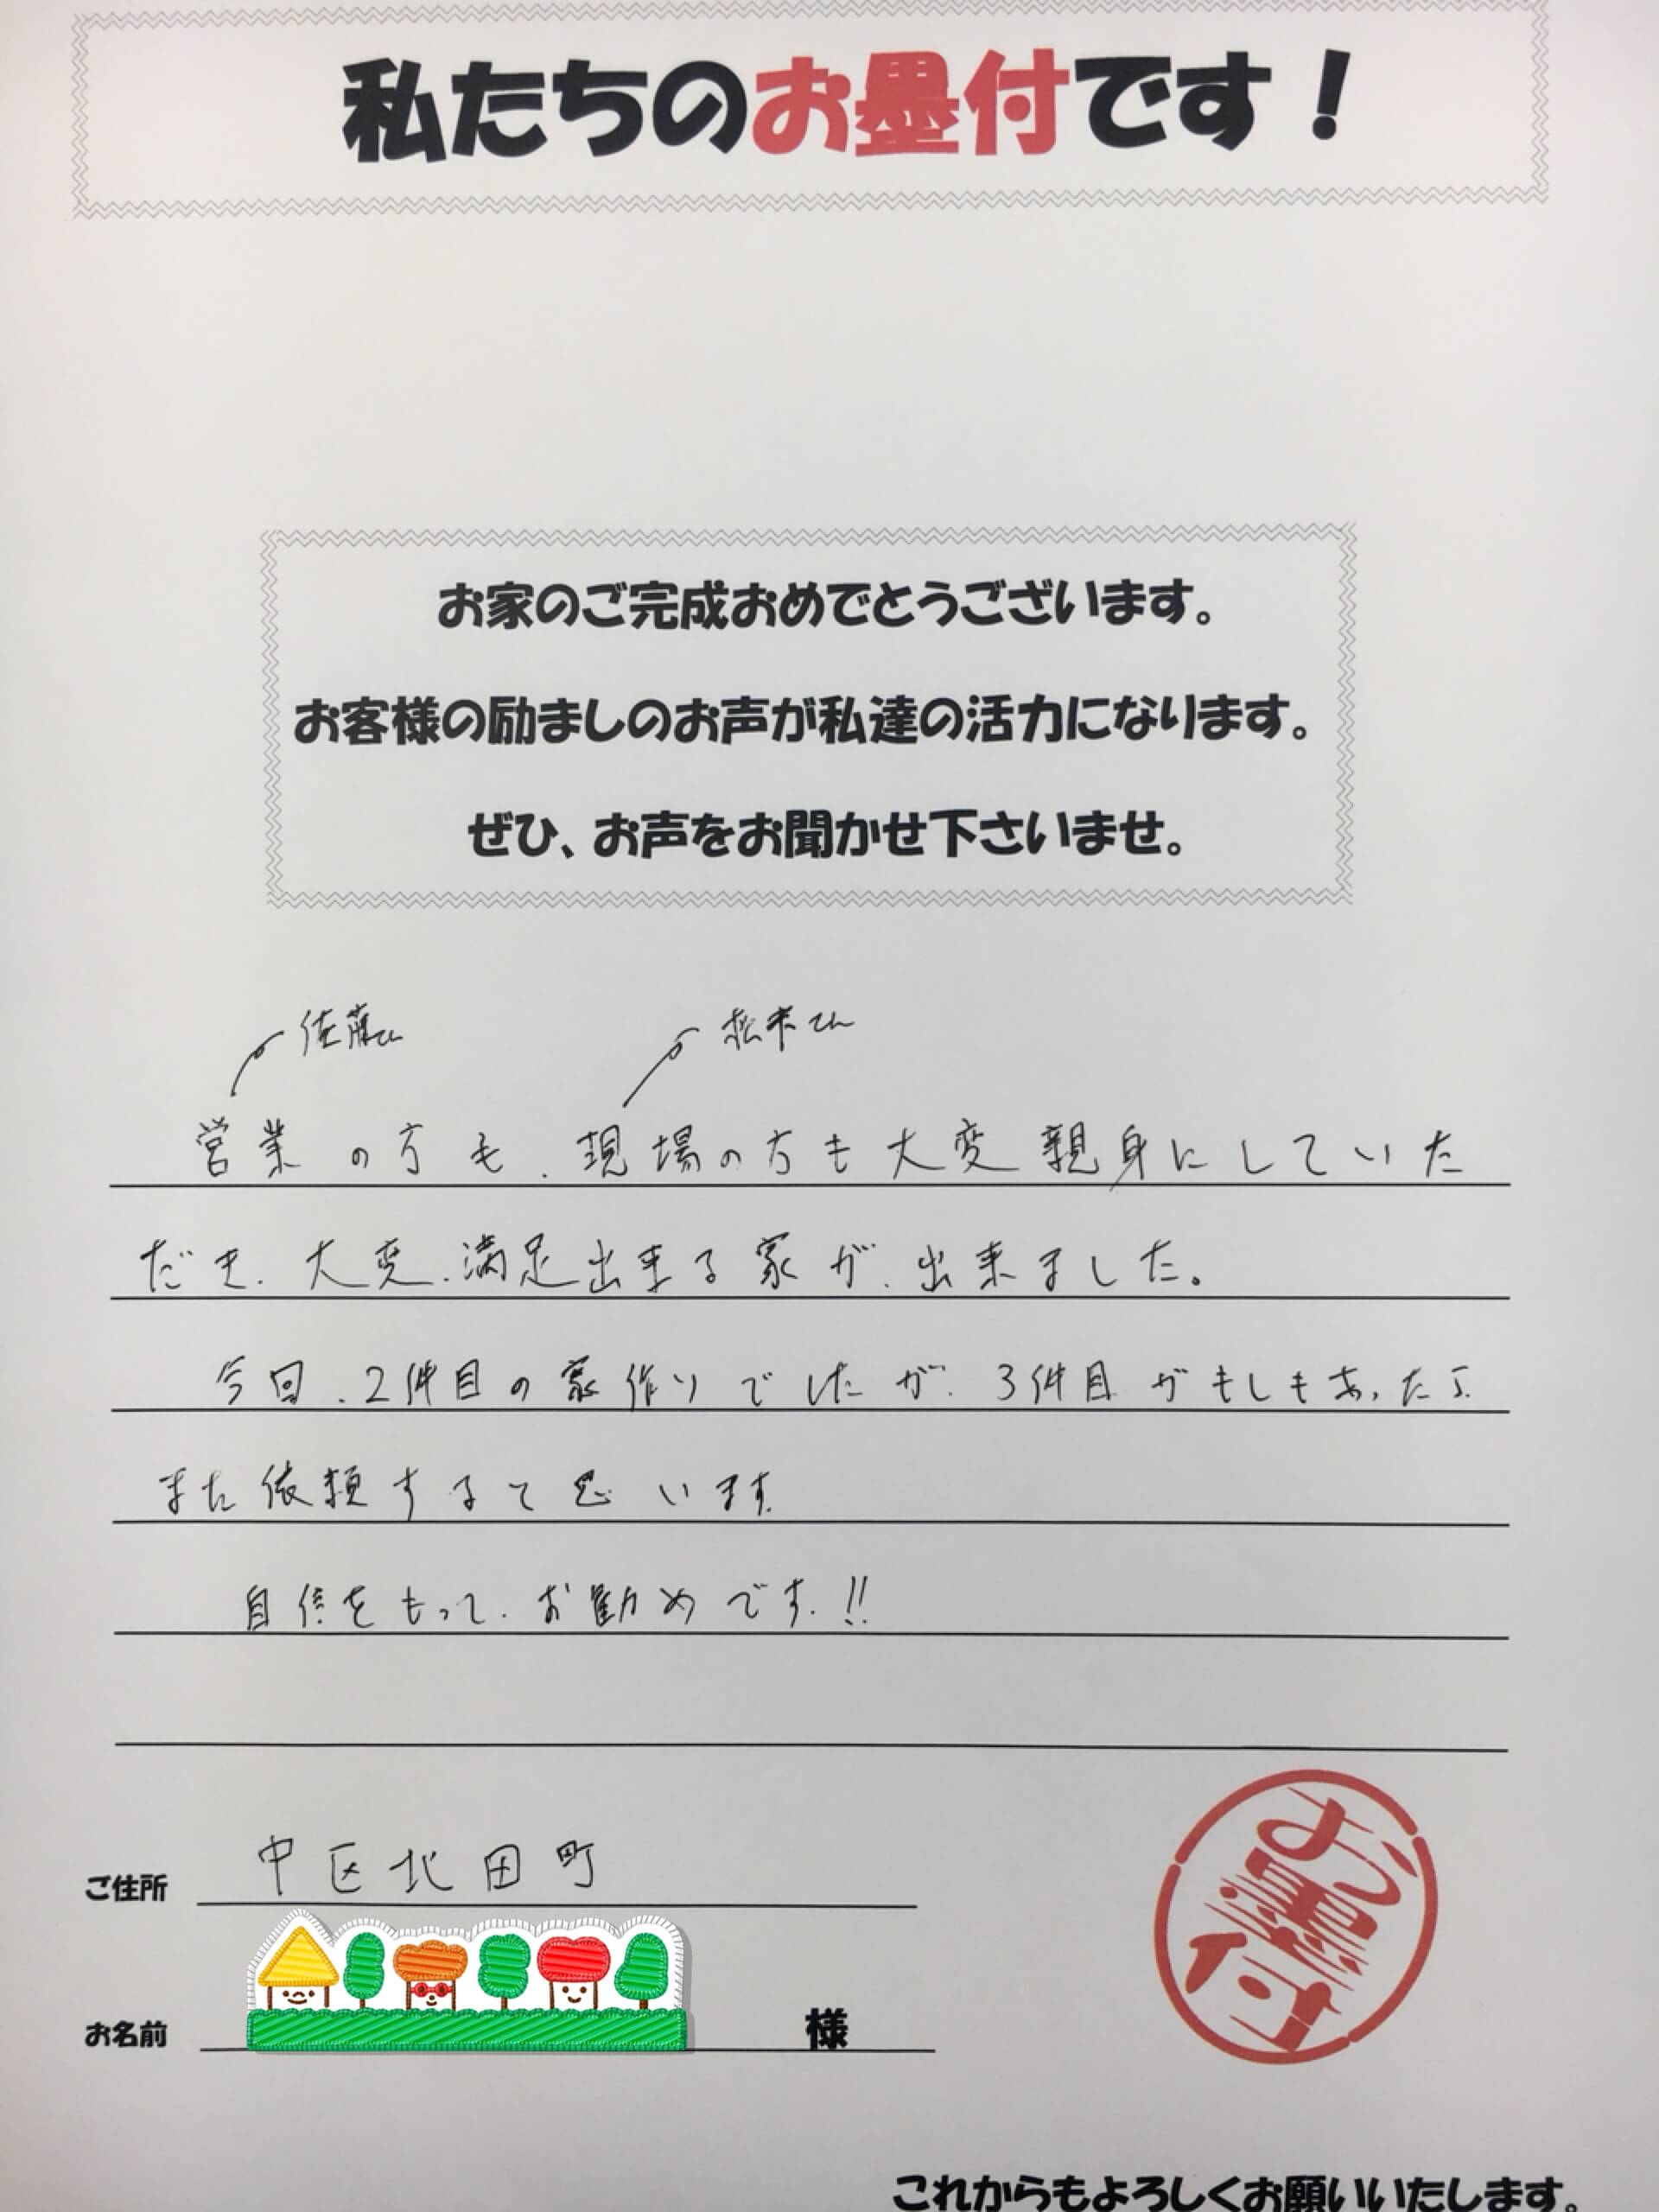 私たちのお墨付です！
お家のご完成おめでとうございます。
お客様の励ましのお声が私達の活力になります。
ぜひ、お声をお聞かせ下さいませ。
佐藤さん
松本さん
営業の方も、現場の方も大変親身にしていた
だき、大変、満足出来る家が、出来ました。
今回、2件目の家作りでしたが、3件目がもしもあったら
また依頼すると思います。
自信をもって、お勧めです!!
ご住所 中区北田町
お名前 様
お墨付
これからもよろしくお願いいたします。